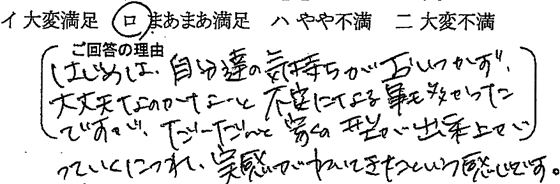 イ 大変満足 ロ まあまあ満足 ハ やや不満 ニ 大変不満
ご回答の理由
はじめは、自分達の気持ちがおいつかず、
大丈夫なのかなーと不安になる事も多かった
ですが、だんだんと家の型が出来上が
っていくにつれ、実感がわいてきたという感じです。